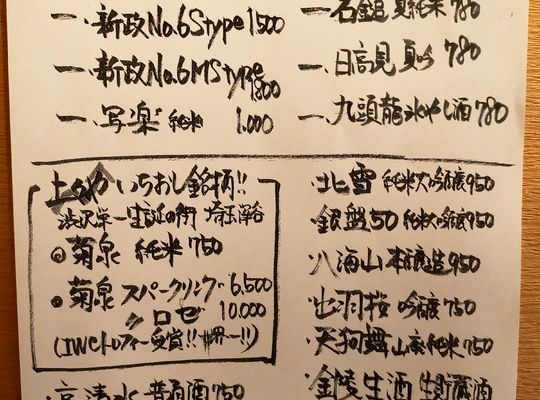 一、新政No.6Stype1500
一、新政No.6MStype1800
一、写楽 純米 1.000
一、石鎚 夏純米 780
一、日高見 夏吟 780
一、九頭龍氷やし酒780
いちおし銘柄!!
渋沢栄一生誕の街 埼玉深谷
◎菊泉 純米 750
●菊泉 スパークリング 6,500
〃 ロゼ 10.000
(IWCトロフィー受賞!!世界一!!)
・北雪 純米大吟醸950
・銀盤50 純米大吟醸950
・八海山本醸造950
・出羽桜 吟醸 750
・天狗舞山廃純米750
・金陵生酒 生貯蔵酒